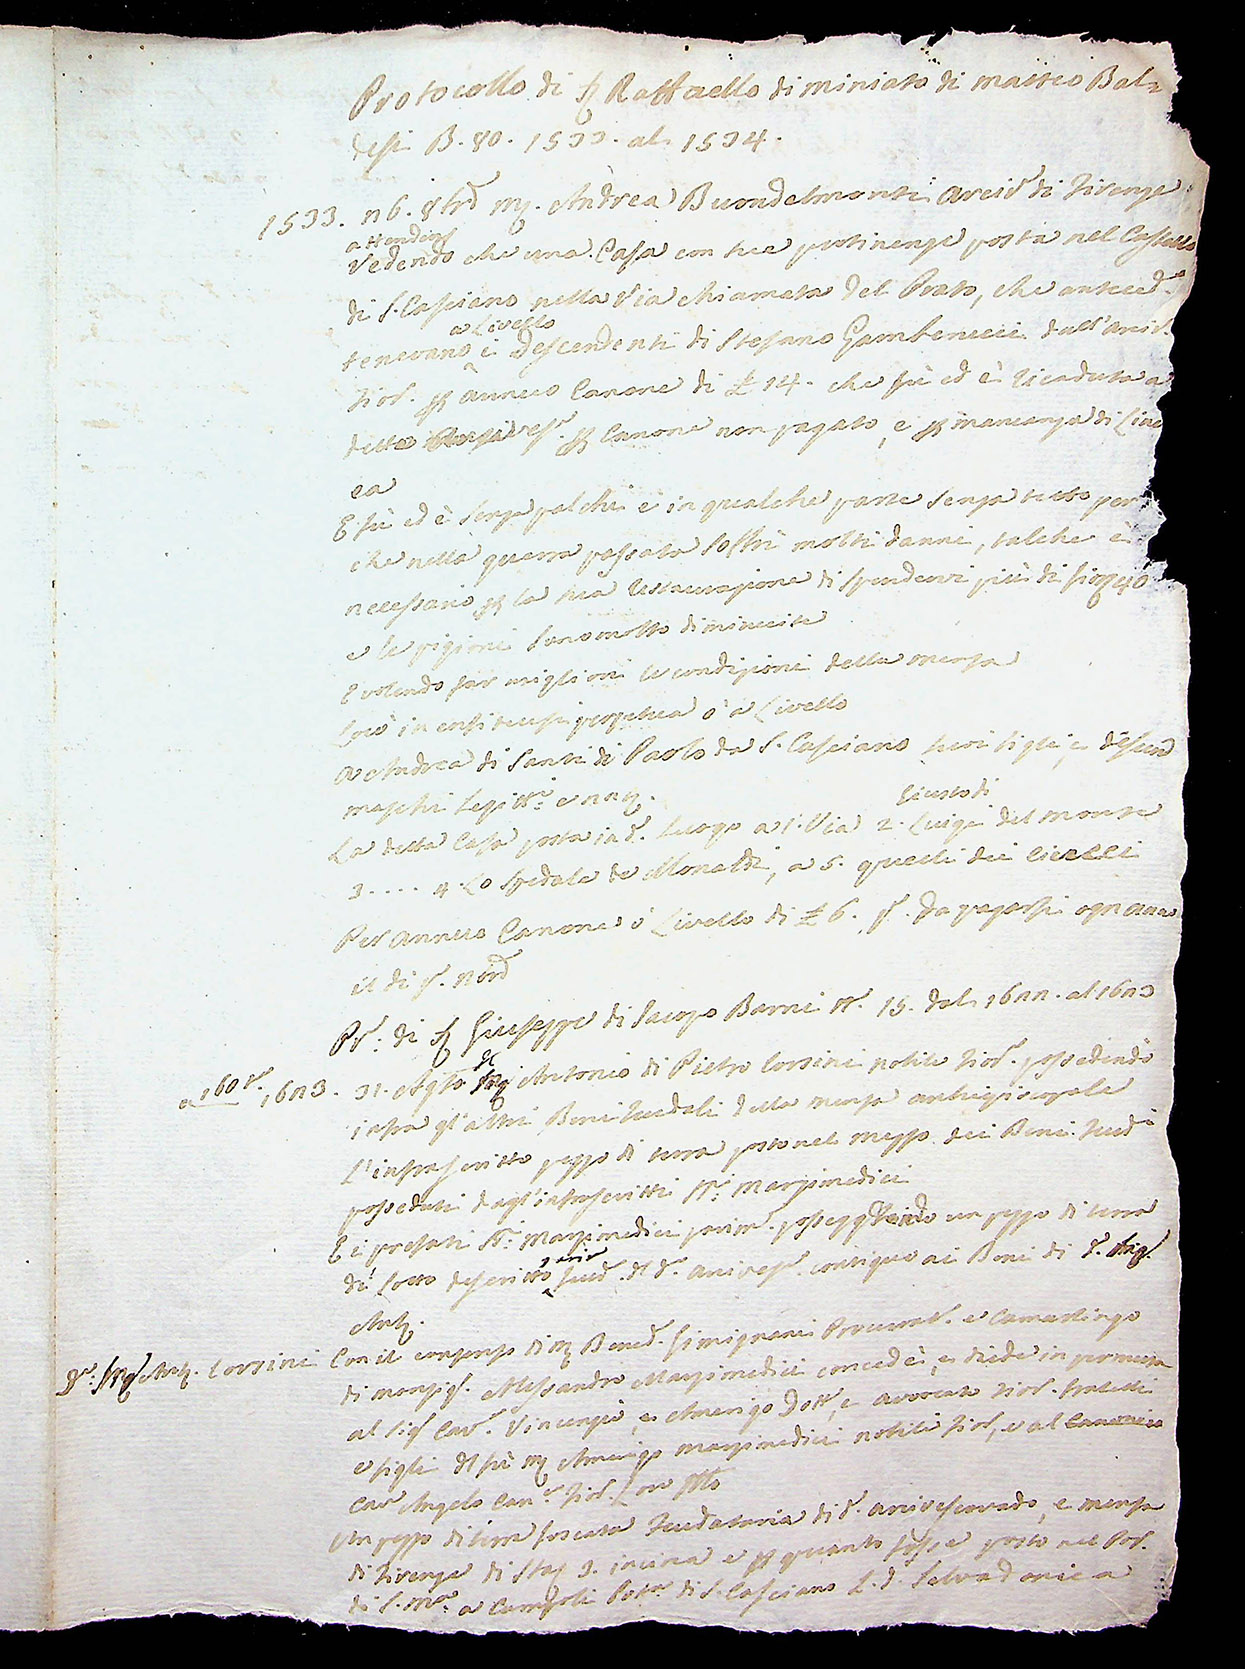 Protocollo di Sr Raffaello di miniato di matteo Bal=
desi B. 80. 1533. al 1534.
1533. n 6. 8bre Mr. Andrea Buondelmonti Arciv. di Firenze
attendens
Vedendo che una Casa con sue pertinenze posta nel Castello
di S. Casciano nella Via chiamata del Prato, che anteced.
a Livello
tenevano i Descendenti di Stefano Gamberucci dall' Arciv.
Fior. per annuo Canone di £ 14. che fù ed è ricaduta a
detto per Canone non pagato, e per mancanza di Line
ea
E fù ed è senza palchi e in qualche parte senza tetto per
che nella guerra passata soffrì molti danni, talche è
necessario per la sua restaurazione di spendervi più di fior. 40
e le pigioni sono molto diminuite
E volendo far migliori le condizioni della mensa
Locò in enfiteusi perpetua ò à Livello
A Andrea di Santi di Paolo da S. Casciano suoi figli, e descend
maschi legitt.i e nn.
Giusto di
La detta Casa posta in d. luogo a 1. Via 2. Luigi del monte
3. .... 4. Lo Spedale de Monaldi, a 5. quelli dei Ciecci
Per annuo Canone ò Livello di £ 6. p. da pagarsi ogn anno
il di p. 9bre
Pr. di Sr Giuseppe di Iacopo Barni 15. dal 16nn. al 16n3
a 160 r. 16n3. 31. Agto Antonio di Pietro Corsini nobile Fior. possedendo
infra gl' altri Beni feudali della mensa archiepiscopale
L' infrascritto pezzo di terra posto nel mezzo dei Beni feud.
posseduti dagl' infrascritti SS.i Marzimedici
E i prefati SS.i Marzimedici parim. posseggendo un pezzo di terra
di sotto descritto feud. di d. Arcivesc. contiguo ai Beni di d. Sig.
Ant.
Dto: Sig. Ant. Corsini Con il consenso di Mr Bened. Gimignani Procurat. e Camarlingo
di monsig. Alessandro Marzimedici concede, e diede in permuta
al Sig. Cav. Vincenzio, e Amerigo Dott., e avvocato Fior. fratelli
e figli del fù Mr Amerigo marzimedici nobili Fior., e al Canonico
Cav. Angelo Can.co Fior. Loro
Un pezzo di terra boscata feudataria di d. arcivescovado, e mensa
di Firenze di Stai 3. incirca e per quanto fosse posto nel Pop.
di S. Ma. a Campoli Pot.a di S. Casciano L. d. Selvadonica